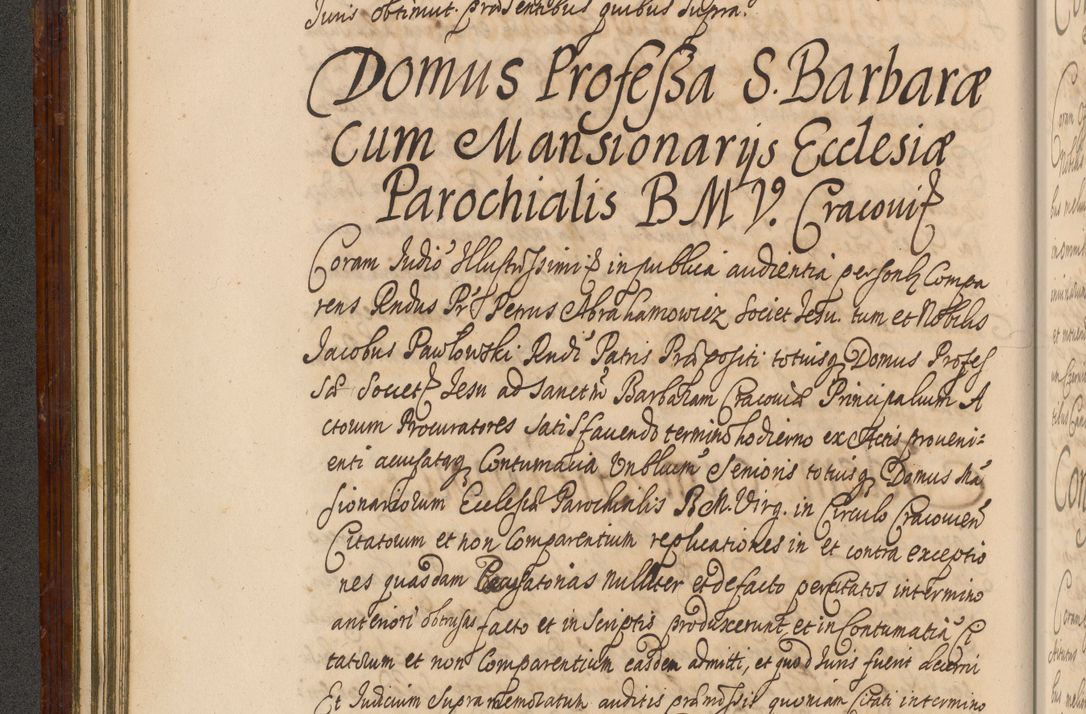 Juris obtinuit. præsentibus quibus supra.
Domus Professa S. Barbaræ
Cum Mansionarijs Ecclesiæ
Parochialis B M V. Cracovien
Coram Judio Illustrissimi in publica audientia personlr Compa
rens Rndus Pr Petrus Abrahamowicz Societ Jesu. tum et Nobilis
Jacobus Pawlowski Rndi Patris Præpositi totiusq Domus Profes
sæ Societ Jesu ad Sanctm Barbaram Cracoviæ Principalium A
ctorum Procuratores satisfaciendo termino hodierno ex Actis proveni=
enti accusatqq Contumacia Vnblium Senioris totiusq Domus Ma
sionariorum Ecclesiæ Parochialis B.M. Virg. in Circulo Cracovien
Citatorum et non Comparentium replicationes in et contra exceptio
nes quasdam Recusatorias nulliter et de facto per Citatos in termino
anteriori obtrusas facto et in Scriptis produxerunt, et in Contumatia Ci
tatorum et non Comparentium easdem admitti, et quod Juris fuerit decerni
Et Judicium Supramemoratum auditis præmissis quoniam Citati in termino